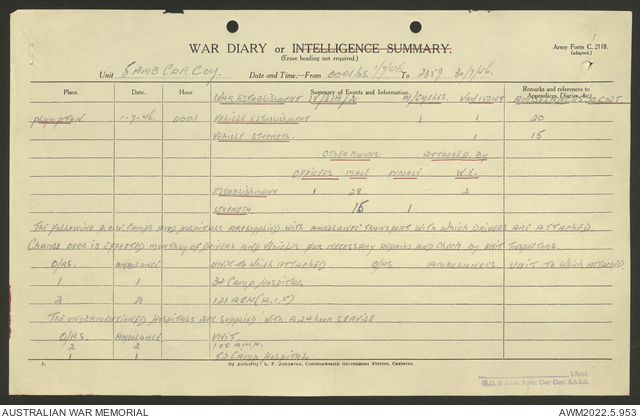 WAR DIARY or INTELLIGENCE SUMMARY.
(Erase heading not required.)
Army Form C. 2118.
(adapted.)
Unit 5 AMB CAR COY. Date and Time—From 0001 hrs. 1/9/46 To 2359 30/9/46.
Place. Date. Hour. Summary of Events and Information. Remarks and references to Appendices, Diaries, &c.
WAR ESTABLISHMENT M/CYCLES. AMBULANCES
PLYMPTON 1-9-46 0001 VEHICLE ESTABLISHMENT 1 1 20
VEHICLE STRENGTH. 1 15
OTHER RANKS ATTACHED BY
OFFICERS MALE FEMALE W.E.
ESTABLISHMENT 1 28 2
STRENGTH 15 1
THE FOLLOWING P.O.W. CAMPS AND HOSPITALS ARE SUPPLIED WITH AMBULANCE TRANSPORT WITH WHICH DRIVERS ARE ATTACHED.
CHANGE OVER IS EFFECTED MONTHLY OF DRIVERS AND VEHICLES FOR NECESSARY REPAIRS AND CHECK BY UNIT INSPECTORS.
O/RS. AMBULANCE UNIT TO WHICH ATTACHED O/RS AMBULANCES UNIT TO WHICH ATTACHED.
1 1 34 CAMP HOSPITAL
2 2 121 AGH (A.I.F)
THE UNDERMENTIONED HOSPITALS ARE SUPPLIED WITH A 24 HOUR SERVICE
O/RS. AMBULANCE UNIT
2 2 105 A.M.H.
1 1 52 CAMP HOSPITAL
By Authority: L. F. Johnston, Commonwealth Government Printer, Canberra.
Lieut.
Amb. Car Coy. A.A.S.C.
AUSTRALIAN WAR MEMORIAL
AWM2022.5.953